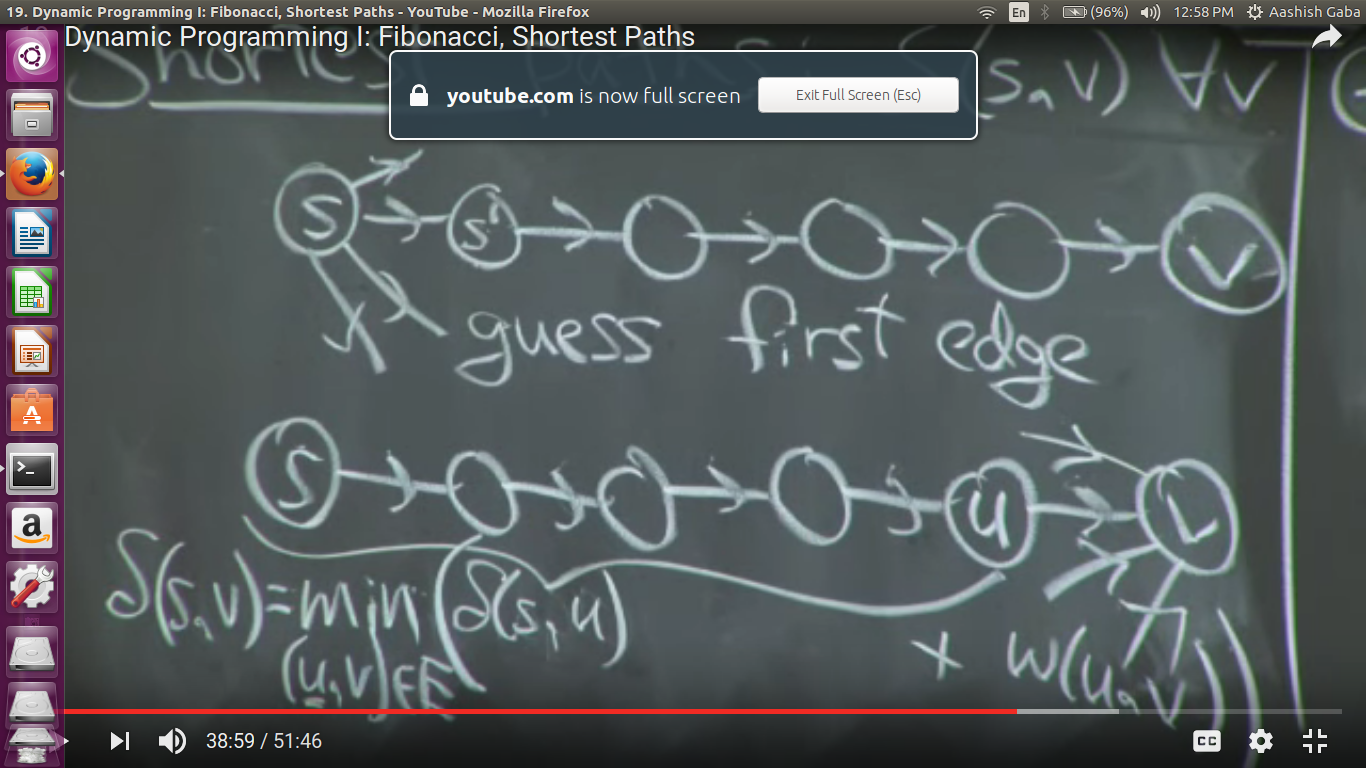 19. Dynamic Programming I: Fibonacci, Shortest Paths - YouTube - Mozilla Firefox
En
(96%)
12:58 PM
Aashish Gaba
Dynamic Programming I: Fibonacci, Shortest Paths
youtube.com is now full screen
Exit Full Screen (Esc)
Shortest (s, v) ∀v
s s' v
guess first edge
s u v
δ(s,v) = min (δ(s,u) + w(u,v))
(u,v)∈E
38:59 / 51:46
CC